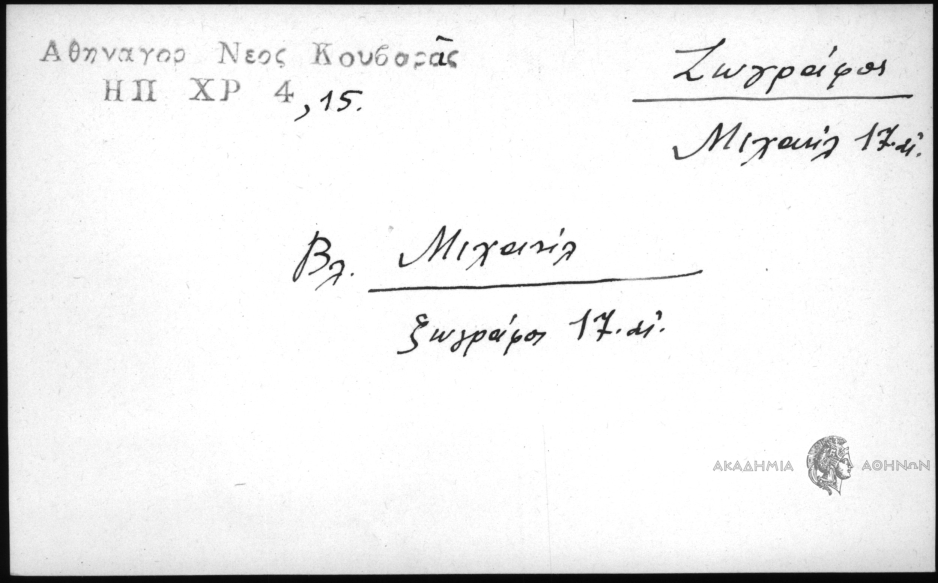 Αθηναγορ Νεος Κουβαρᾶς
ΗΠ ΧΡ 4, 15.
Ζωγράφος
Μιχαήλ 17. αἰ.
Βλ. Μιχαήλ
ζωγράφος 17. αἰ.
ΑΚΑΔΗΜΙΑ ΑΘΗΝΩΝ